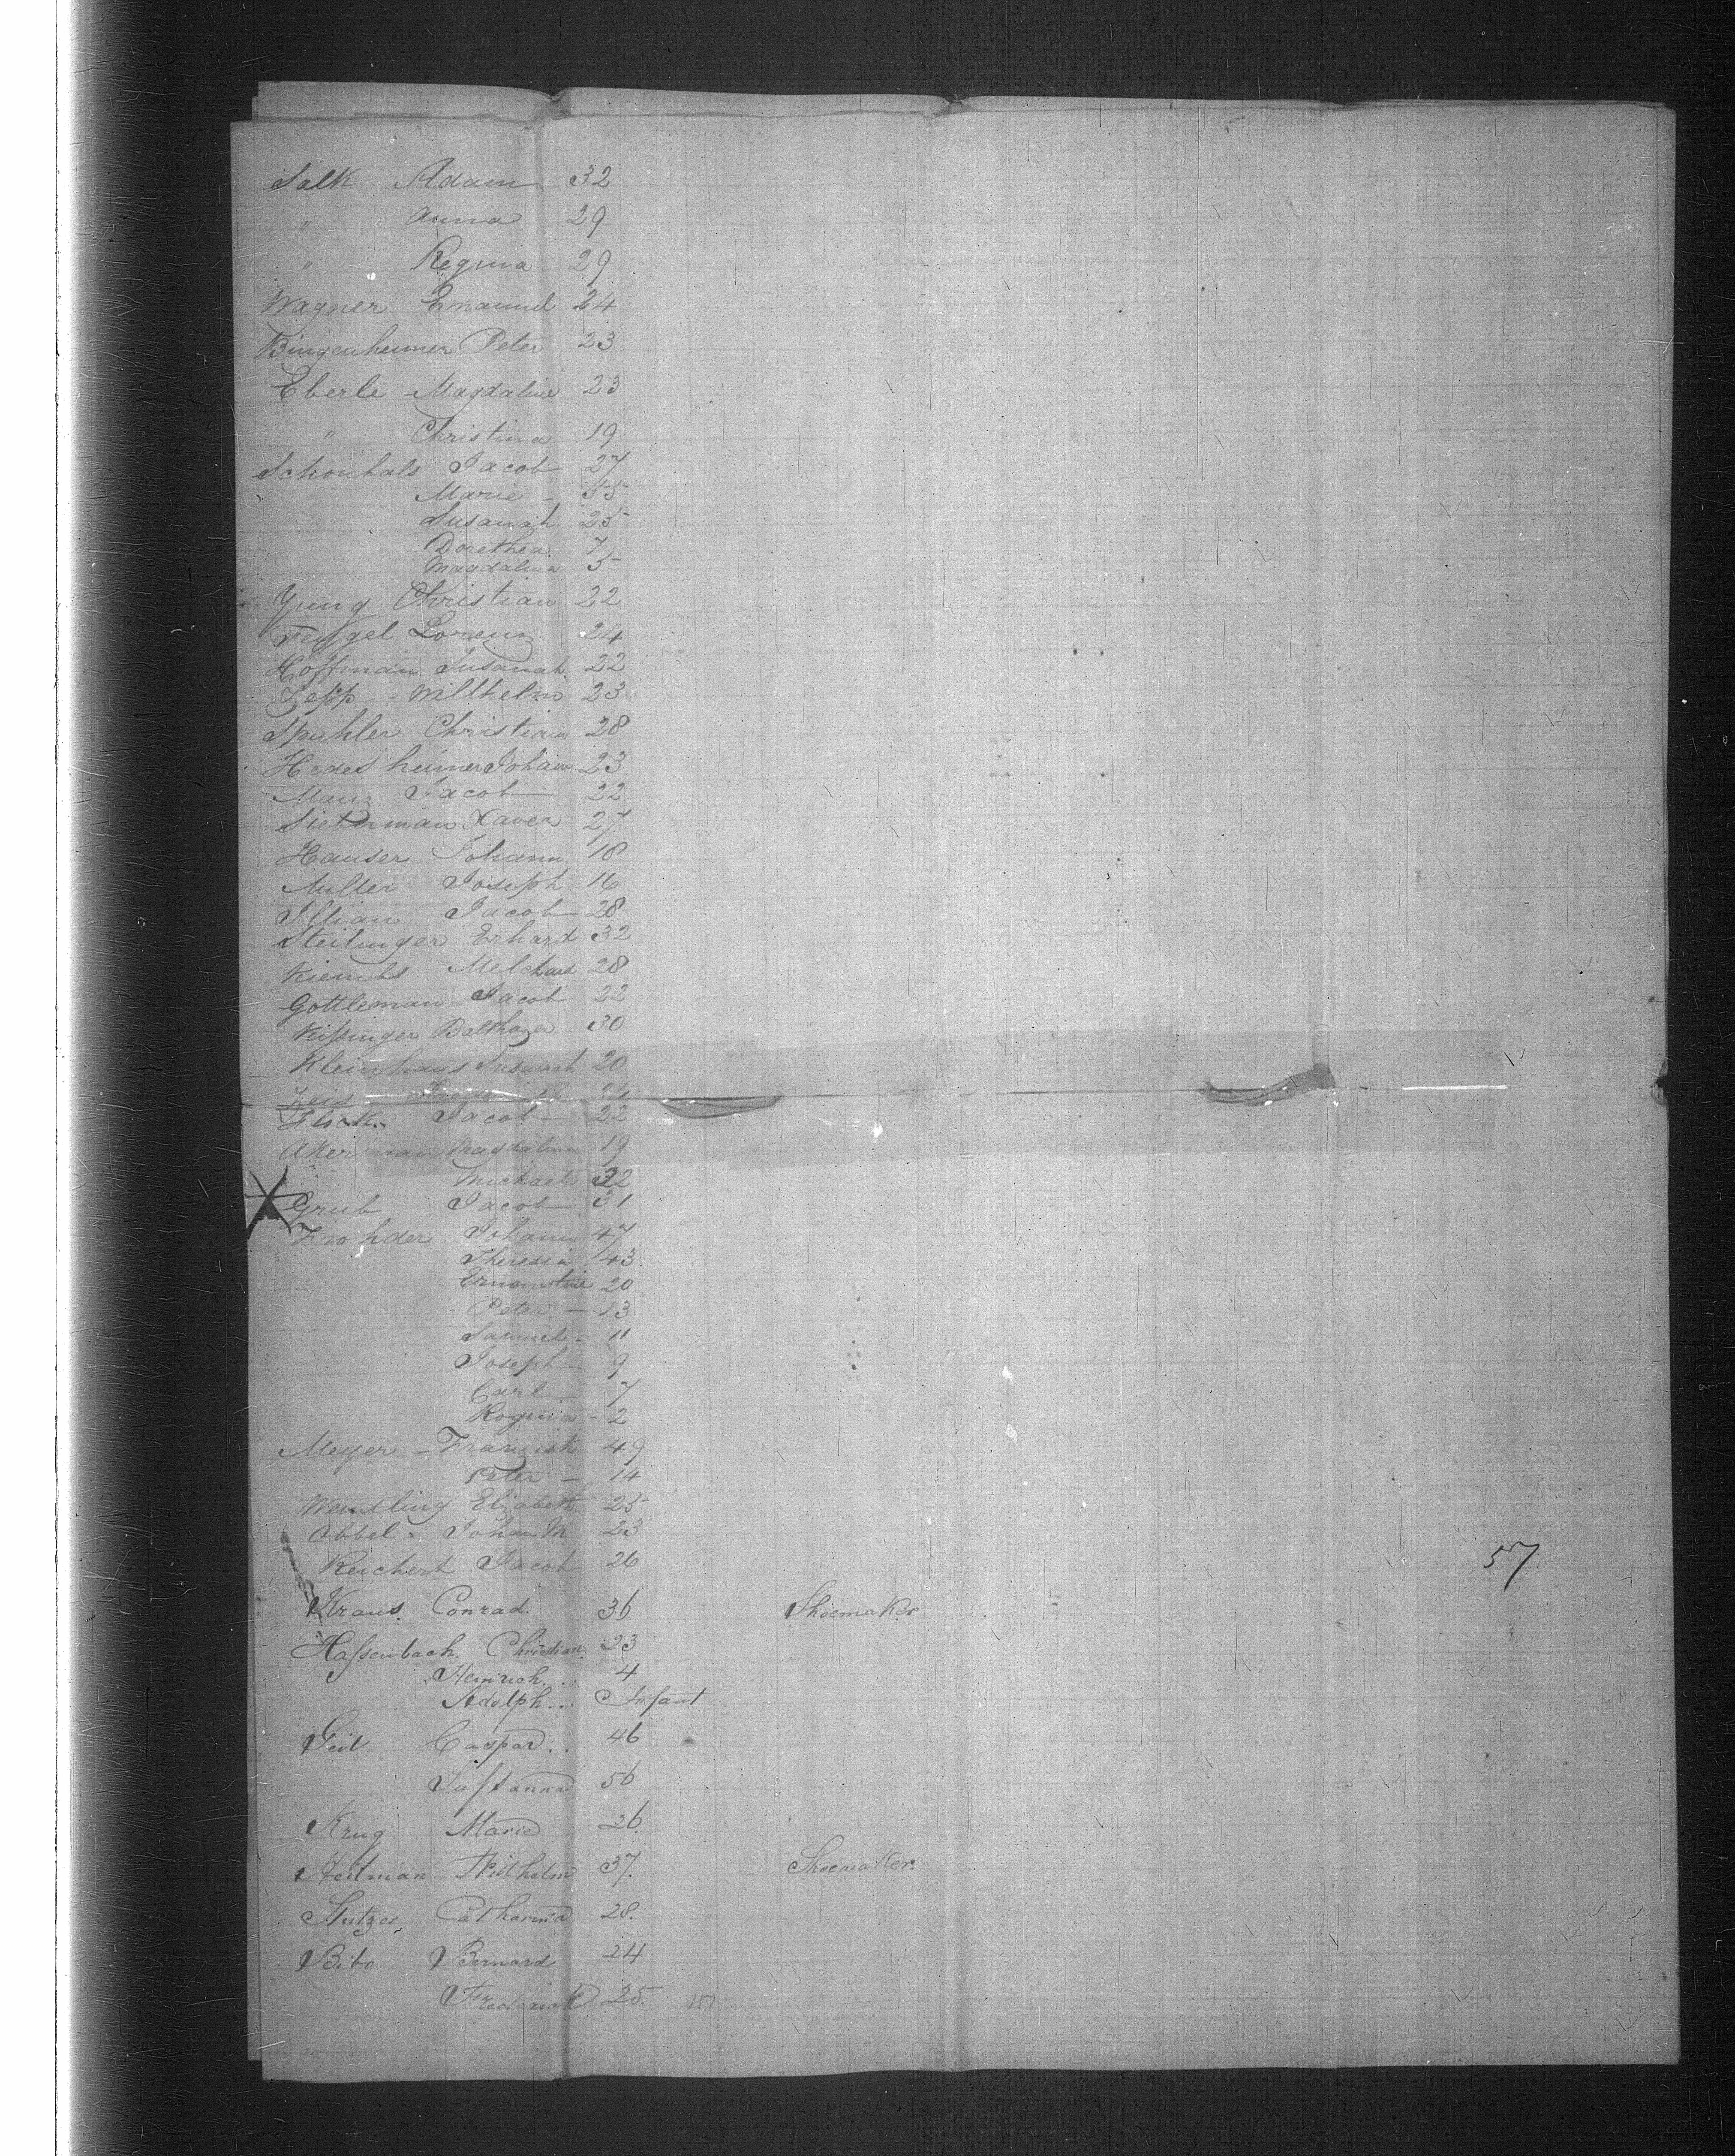 Salk Adam 32
" Anna 29
" Regina 29
Wagner Emanuel 24
Bingenheimer Peter 23
Eberle Magdaline 23
" Christina 19
Schonhals Jacob 27
Marie - 55
Susanah 25
Dorethea 7
Magdalina 5
Yung Christian 22
Lorenz 24
Hoffman Susanah 22
Zepp - Willhelm 23
Spuhler Christian 28
Hedesheimer Johann 23
Manz Jacob 22
Sieberman Xaver 27
Hauser Johann 18
Muller Joseph 16
Illian Jacob 28
Steilinger Erhard 32
Kiembs 28
Gottleman Jacob 22
Kissinger Balthazer 30
Kleinhans Susanah 20
Zeis
Flick Jacob 22
Akerman Magdalina 19
Michael 32
Grub Jacob 31
Frohder Johann 47
Theresia 43
Ernestine 20
Peter - 13
Samuel - 11
Joseph 9
Carl - 7
Regina - 2
Meyer - Franzisk 49
Peter - 14
Wendling Elizabeth 25
Abbel - Johan M 23
Reichert Jacob 26
57
Kraus. Conrad. 36 Shoemaker
Hassenbach. Christian. 23
Heinrich... 4
Adolph... Infant
Geil Caspar.. 46
Sussanna 56
Krug Maria 26.
Heilman Wilhelm 37. Shoemaker.
Stutzer Catharina 28.
Bernard 24
Frederick 25. 157